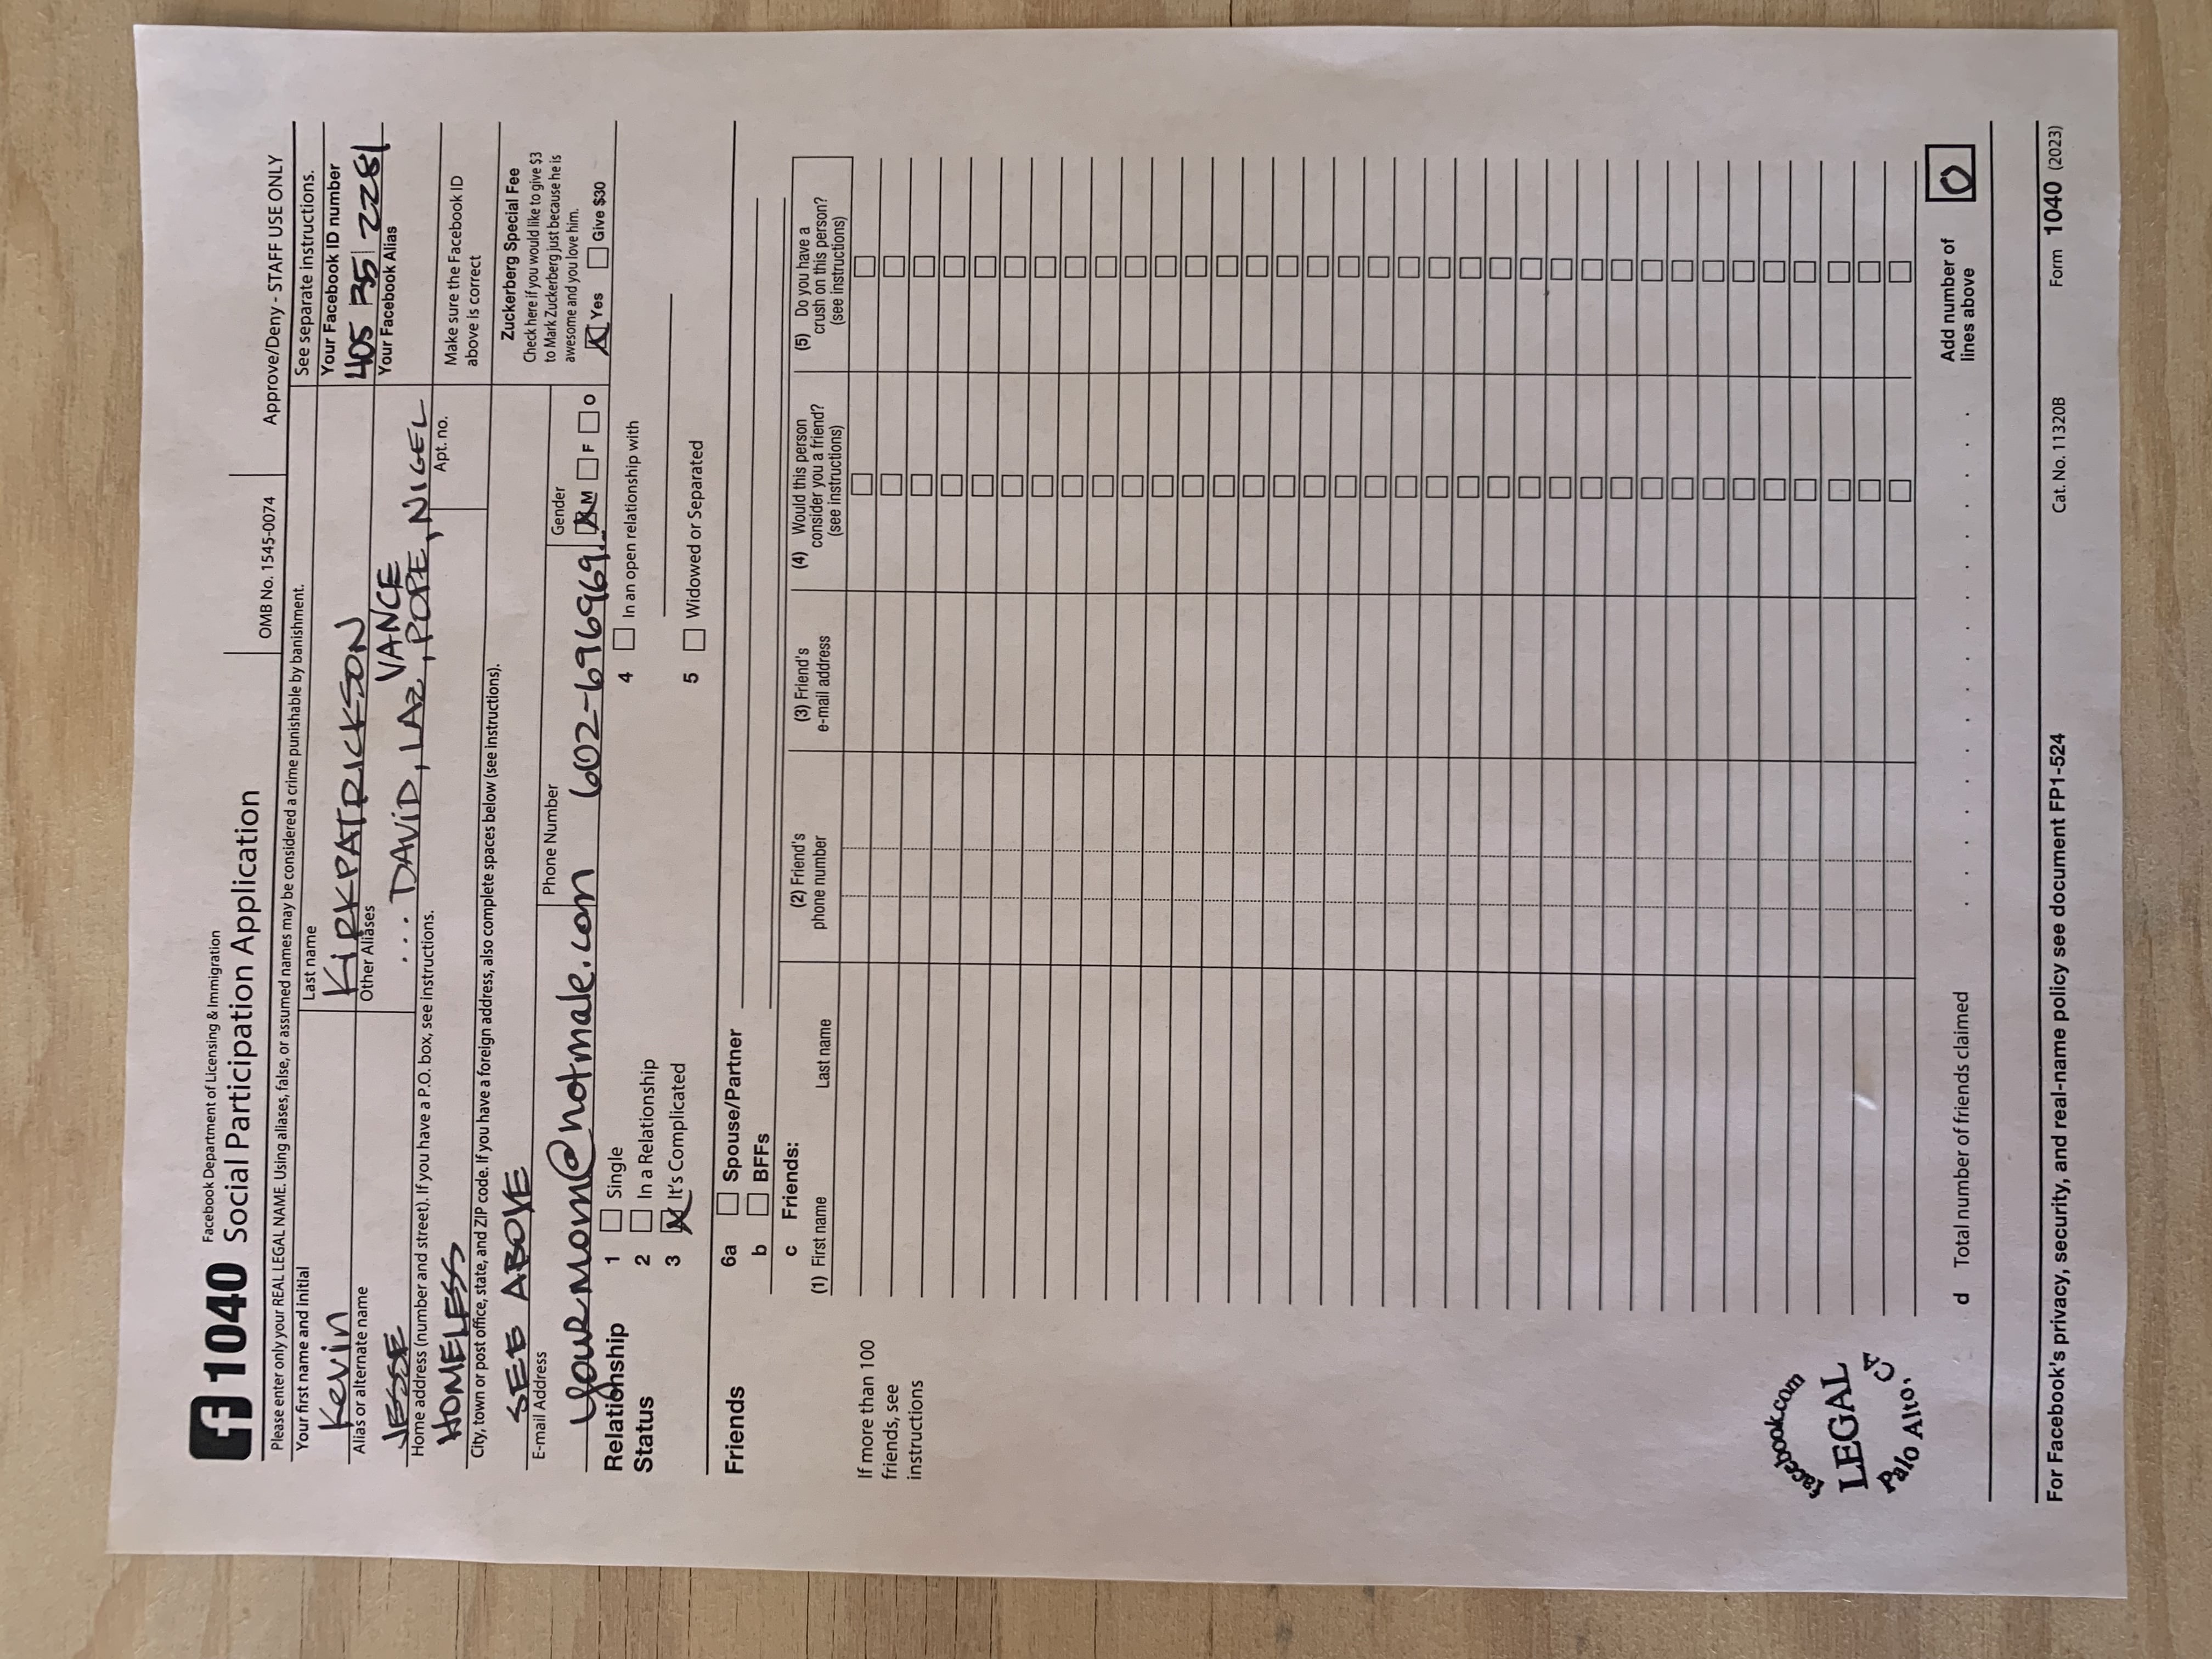 f 1040 Facebook Department of Licensing & Immigration
Social Participation Application
OMB No. 1545-0074
Approve/Deny - STAFF USE ONLY
Please enter only your REAL LEGAL NAME. Using aliases, false, or assumed names may be considered a crime punishable by banishment.
See separate instructions.
Your first name and initial
Kevin
Last name
KIRKPATRICKSON
Your Facebook ID number
405 35 2281
Alias or alternate name
JESSE
Other Aliases
... DAVID, LAZ, VANCE, POPE, NIGEL
Your Facebook Alias
Home address (number and street). If you have a P.O. box, see instructions.
HOMELESS
Apt. no.
Make sure the Facebook ID
above is correct
City, town or post office, state, and ZIP code. If you have a foreign address, also complete spaces below (see instructions).
SEE ABOVE
Zuckerberg Special Fee
Check here if you would like to give $3
to Mark Zuckerberg just because he is
awesome and you love him.
X Yes Give $30
E-mail Address
yourmom@notmale.com
Phone Number
602-696969
Gender
X M F O
Relationship
Status
1 Single
2 In a Relationship
3 X It's Complicated
4 In an open relationship with
5 Widowed or Separated
Friends
6a Spouse/Partner
b BFFs
c Friends:
(1) First name Last name
(2) Friend's
phone number
(3) Friend's
e-mail address
(4) Would this person
consider you a friend?
(see instructions)
(5) Do you have a
crush on this person?
(see instructions)
If more than 100
friends, see
instructions
facebook.com
LEGAL
Palo Alto, CA
d Total number of friends claimed . . . . . . . . . . . . . . . . .
Add number of
lines above
0
For Facebook's privacy, security, and real-name policy see document FP1-524
Cat. No. 11320B
Form 1040 (2023)